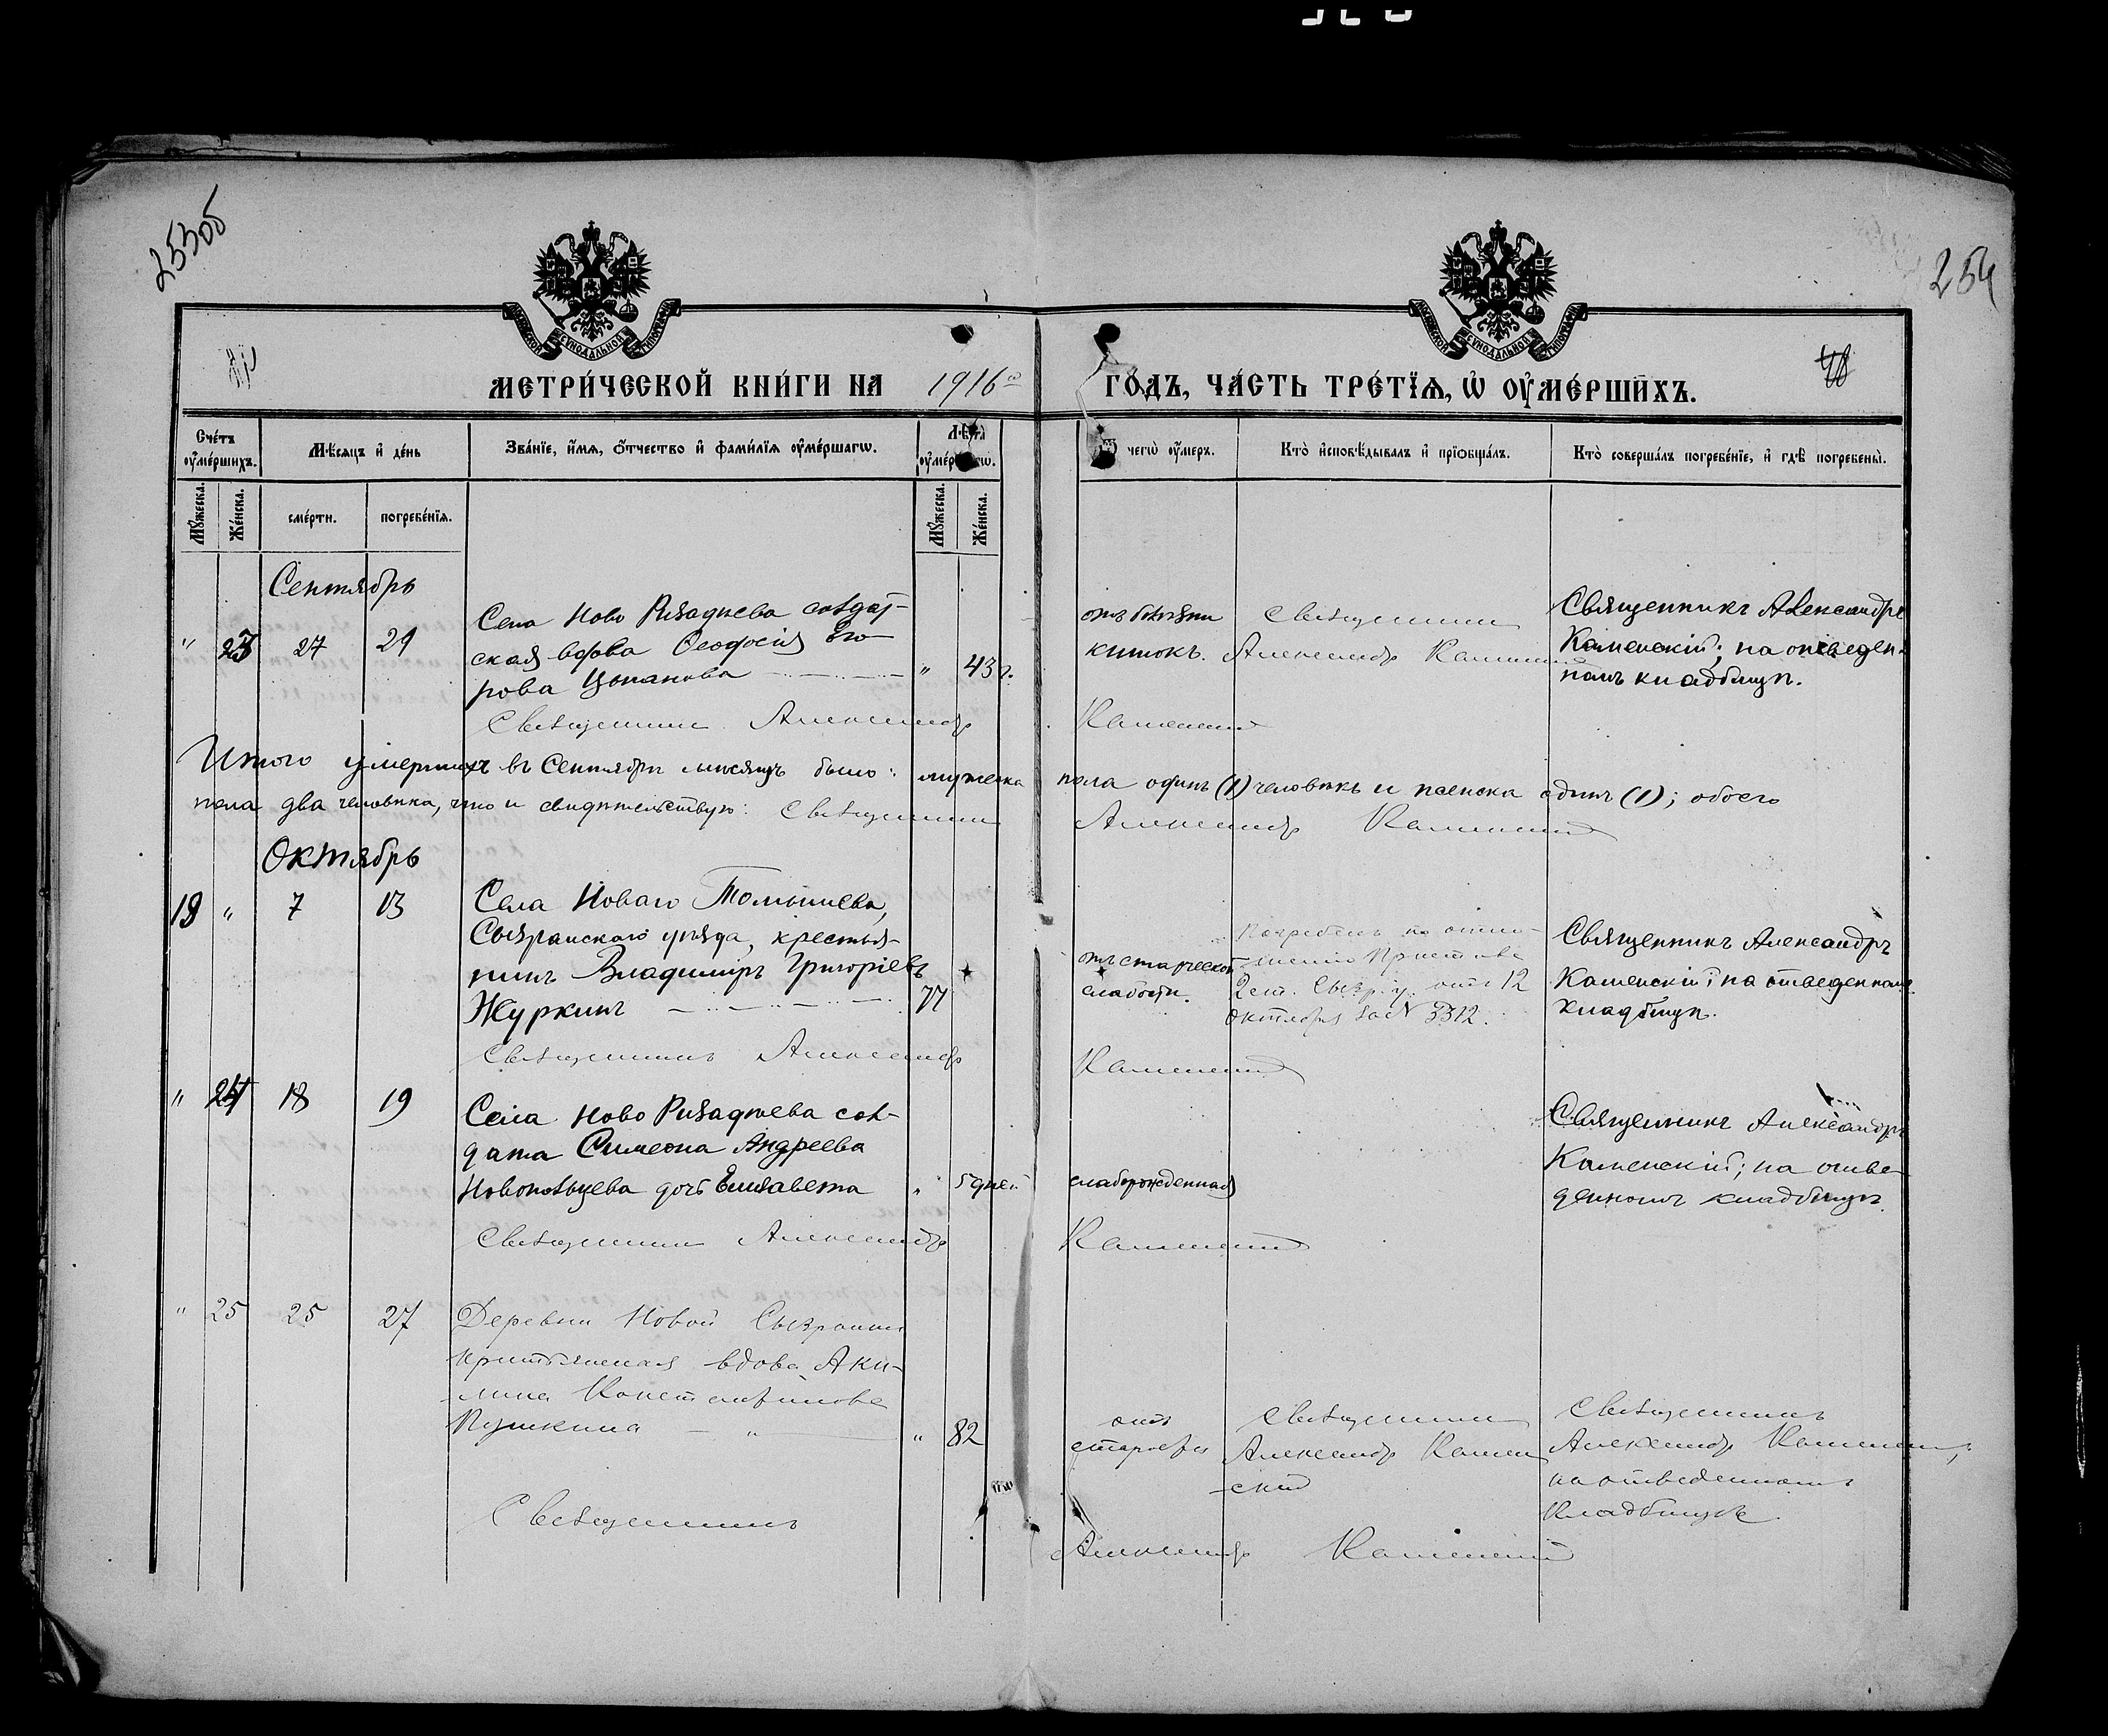 253об
254
МЕТРИ́ЧЕСКОЙ КНИ́ГИ НА 1916 ГО́ДЪ, ЧА́СТЬ ТРЕ́ТЇѦ, Ѡ҆ ОУ҆МЕ́РШИХЪ.
Сче́тъ оу҆ме́ршихъ.
Мѣ́сяцъ и҆ де́нь
Зва́нїе, и҆́мѧ, ѻ҆́тчество и҆ фами́лїѧ оу҆ме́ршагѡ.
Лѣ́та оу҆ме́ршагѡ.
Ѿ чегѡ̀ оу҆́меръ.
Кто̀ и҆сповѣ́дывалъ и҆ прїѻбща́лъ.
Кто̀ соверша́лъ погребе́нїе, и҆ гдѣ̀ погребены̀.
Мꙋ́жеска.
Же́нска.
сме́рти.
погребе́нїѧ.
Мꙋ́жеска.
Же́нска.
Сентябрь
" 23 27 29
Села Ново Ризадѣева солдат-
ская вдова Ѳеодосія Его-
рова Цыпанова " 43 г.
отъ болѣзни
кишокъ.
Священникъ
Александръ Каменскій
Священникъ Александръ
Каменскій; на отведен-
номъ кладбищѣ.
Священникъ Александръ Каменскій
Итого умершихъ въ Сентябрѣ мѣсяцѣ было: мужеска пола одинъ (1) человѣкъ и женска одинъ (1); обоего
пола два человѣка, что и свидѣтельствую: Священникъ Александръ Каменскій
Октябрь
19 " 7 13
Села Новаго Томышева,
Сызранскаго уѣзда, крестья-
нинъ Владиміръ Григоріевъ
Журкинъ 77
отъ старческой
слабости.
Погребенъ по отно-
шенію Пристава
2 ст. Сызр. у. отъ 12
Октября за № 3312.
Священникъ Александръ
Каменскій; на отведенномъ
кладбищѣ.
Священникъ Александръ Каменскій
" 24 18 19
Села Ново Ризадѣева сол-
дата Симеона Андреева
Новопольцева дочь Елисавета " 5 дней
слаборожденная
Священникъ Александръ
Каменскій; на отве-
денномъ кладбищѣ.
Священникъ Александръ Каменскій
" 25 25 27
Деревни Новой Сызранки
крестьянская вдова Аки-
лина Константинова
Пушкина " 82
отъ
старости
Священникъ
Александръ Камен
скій
Священникъ
Александръ Каменскій,
на отведенномъ
кладбищѣ.
Священникъ Александръ Каменскій